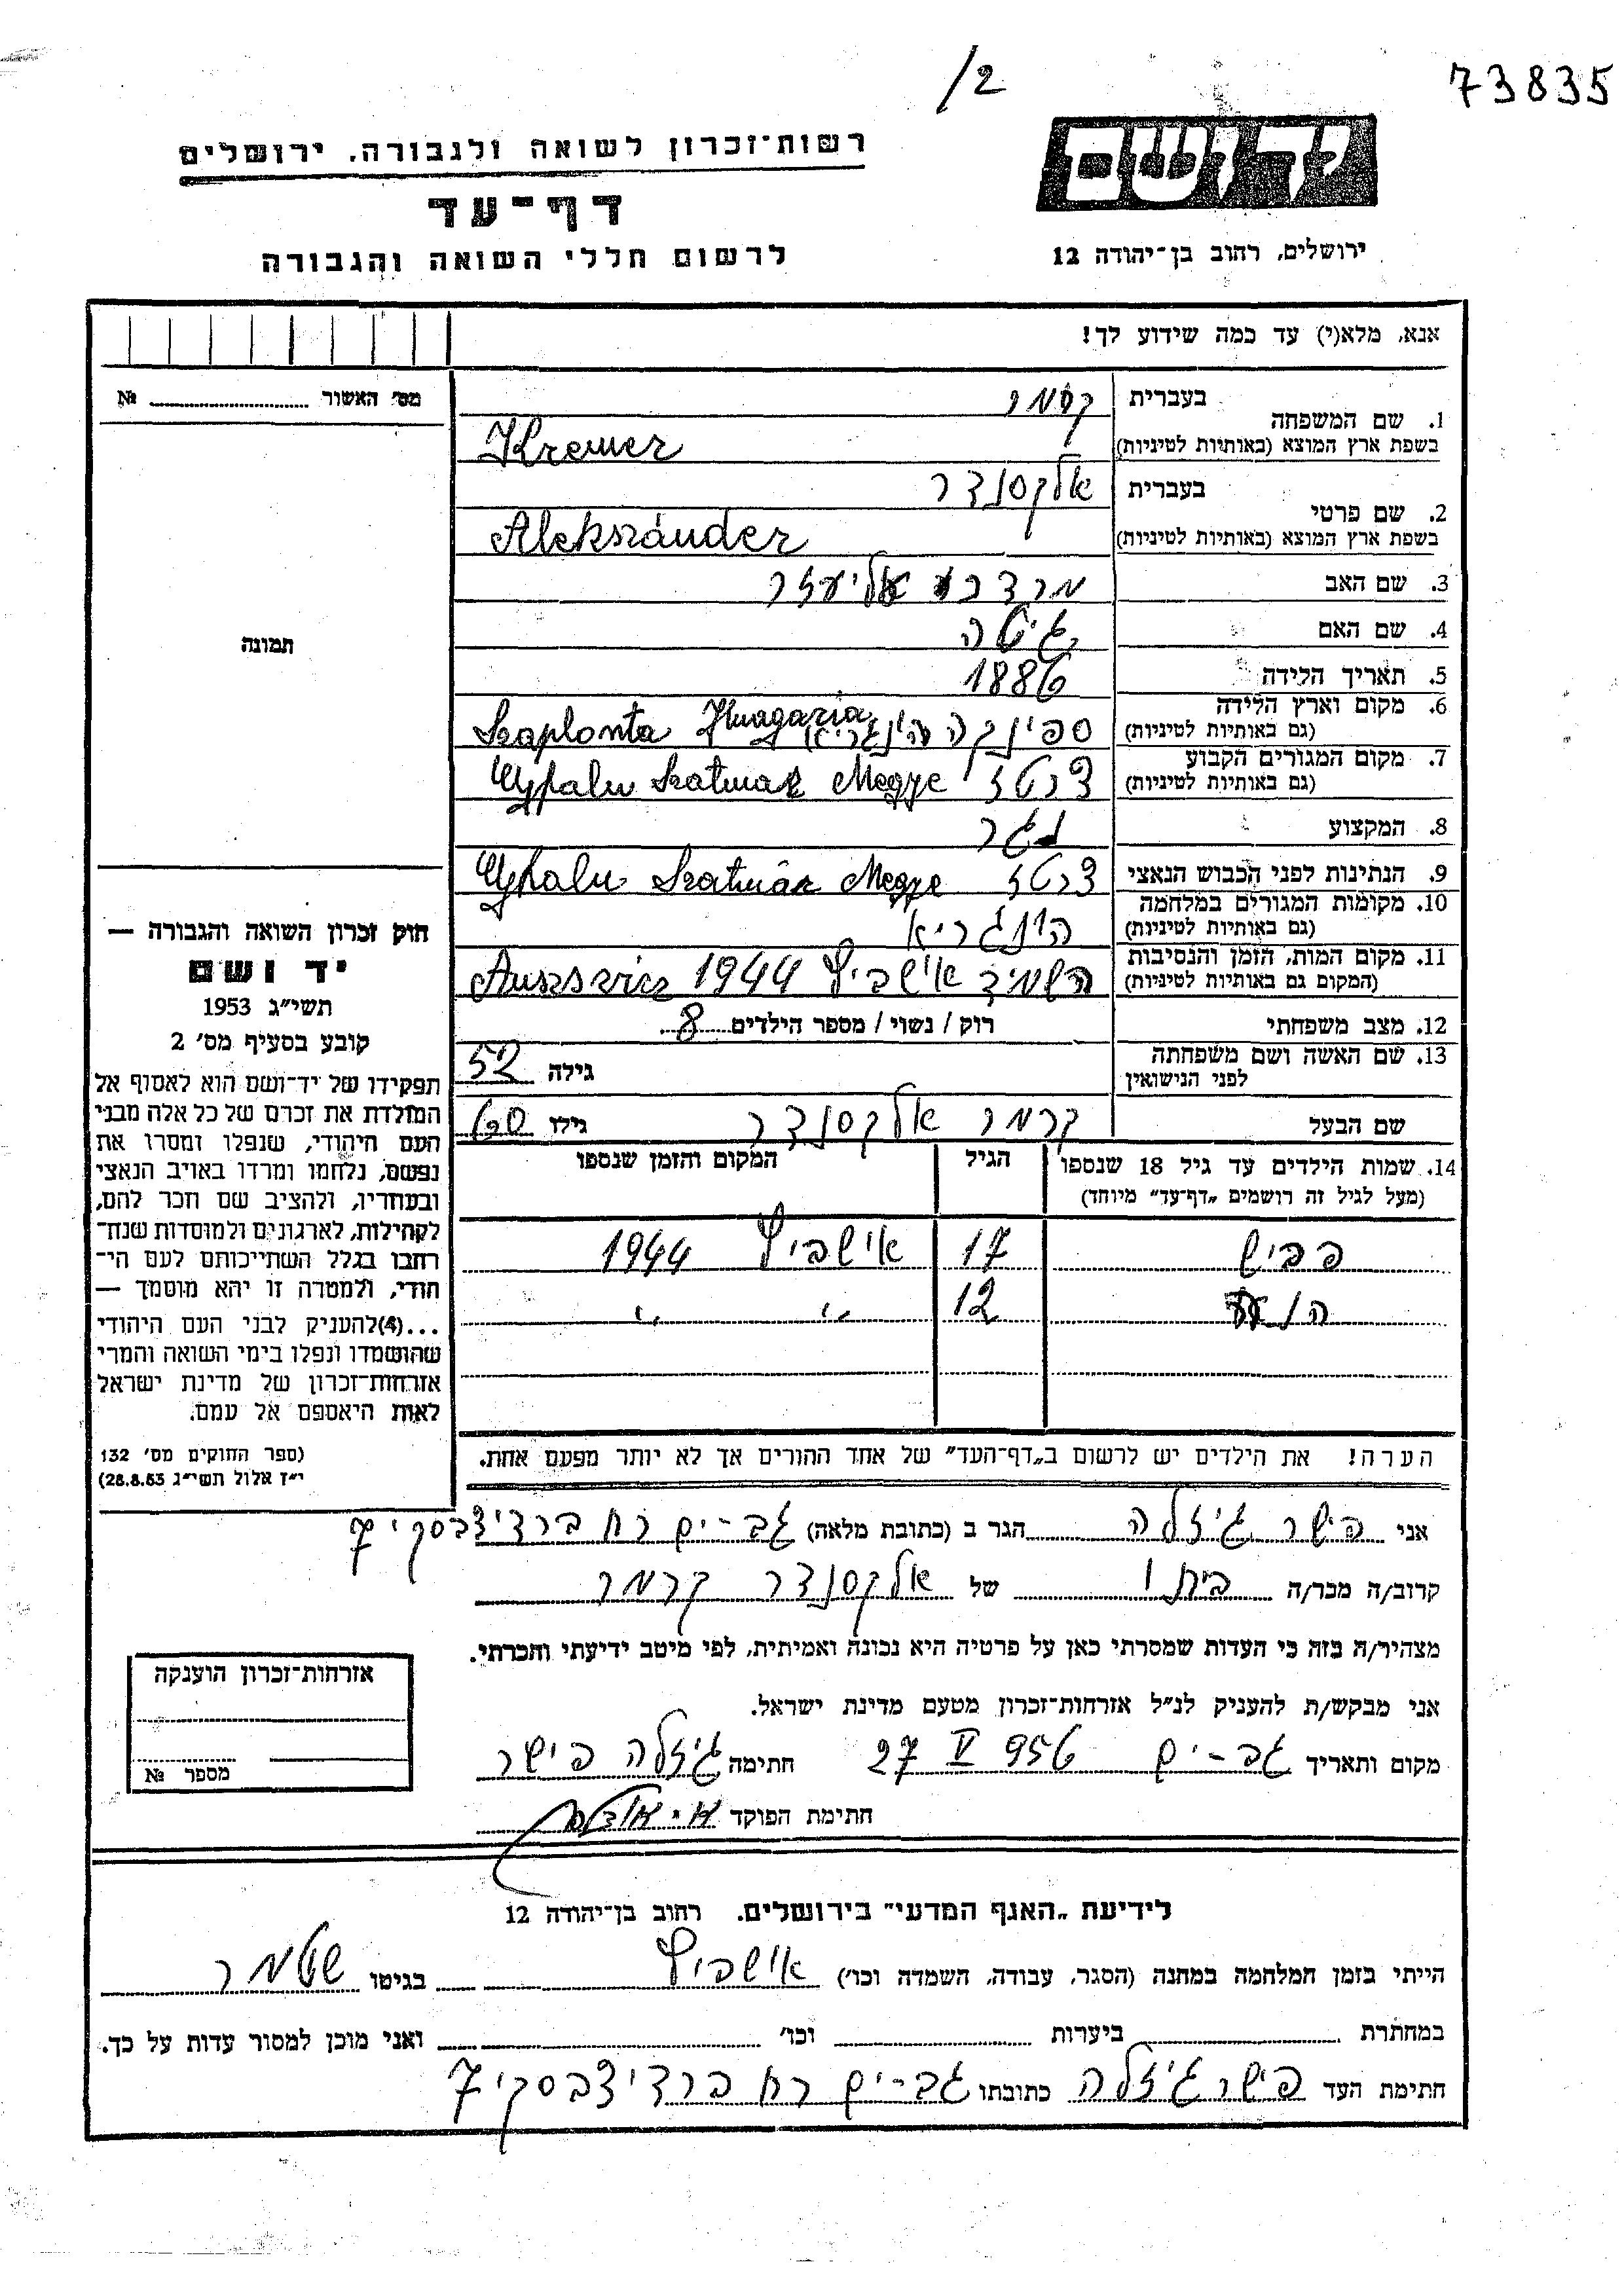 /2
73835
יד ושם
ירושלים, רחוב בן־יהודה 12
רשות־זכרון לשואה ולגבורה, ירושלים
דף־עד
לרשום חללי השואה והגבורה
אנא, מלא(י) עד כמה שידוע לך!
מס' האשור № 
תמונה
1. שם המשפחה בעברית קרמר
בשפת ארץ המוצא (באותיות לטיניות) Kremer
2. שם פרטי בעברית אלקסנדר
בשפת ארץ המוצא (באותיות לטיניות) Alekszánder
3. שם האב מרדכי אליעזר
4. שם האם גיטה
5. תאריך הלידה 1886
6. מקום וארץ הלידה (גם באותיות לטיניות) ספינקה הונגריא Szaplonta Hungaria
7. מקום המגורים הקבוע (גם באותיות לטיניות) Ujfalu Szatmár Megye
8. המקצוע נגר
9. הנתינות לפני הכבוש הנאצי Ujfalu Szatmár Megye
10. מקומות המגורים במלחמה (גם באותיות לטיניות) הונגריא
11. מקום המות, הזמן והנסיבות (המקום גם באותיות לטיניות) אושביץ 1944 Auszszvicz
12. מצב משפחתי רוק / נשוי / מספר הילדים 8
13. שם האשה ושם משפחתה לפני הנישואין גילה 52
שם הבעל קרמר אלקסנדר גילו 60
14. שמות הילדים עד גיל 18 שנספו הגיל המקום והזמן שנספו
(מעל לגיל זה רושמים „דף־עד" מיוחד)
17 אושביץ 1944
12 " "
הערה! את הילדים יש לרשום ב„דף־העד" של אחד ההורים אך לא יותר מפעם אחת.
חוק זכרון השואה והגבורה —
יד ושם
תשי"ג 1953
קובע בסעיף מס' 2
תפקידו של יד־ושם הוא לאסוף אל
המולדת את זכרם של כל אלה מבני
העם היהודי, שנפלו ומסרו את
נפשם, נלחמו ומרדו באויב הנאצי
ובעוזריו, ולהציב שם וזכר להם,
לקהילות, לארגונים ולמוסדות שנח־
רבו בגלל השתייכותם לעם הי־
הודי, ולמטרה זו יהא מוסמך —
...(4)להעניק לבני העם היהודי
שהושמדו ונפלו בימי השואה והמרי
אזרחות־זכרון של מדינת ישראל
לאות היאספם אל עמם.
(ספר החוקים מס' 132
י"ז אלול תשי"ג 28.8.53)
אני פישר גיזלה הגר ב (כתובת מלאה) גב-ים רח ברדיצבסקי 7
קרוב/ה מכר/ה ביתו של אלקסנדר קרמר
מצהיר/ה בזה כי העדות שמסרתי כאן על פרטיה היא נכונה ואמיתית, לפי מיטב ידיעתי והכרתי.
אני מבקש/ת להעניק לנ"ל אזרחות־זכרון מטעם מדינת ישראל.
מקום ותאריך גב-ים 27 V 956 חתימה גיזלה פישר
חתימת הפוקד
אזרחות־זכרון הוענקה
מספר №
לידיעת „האגף המדעי" בירושלים. רחוב בן־יהודה 12
הייתי בזמן המלחמה במחנה (הסגר, עבודה, השמדה וכו') אושביץ בגיטו שטמר
במחתרת ביערות וכו' ואני מוכן למסור עדות על כך.
חתימת העד פישר גיזלה כתובתו גב-ים רח ברדיצבסקי 7